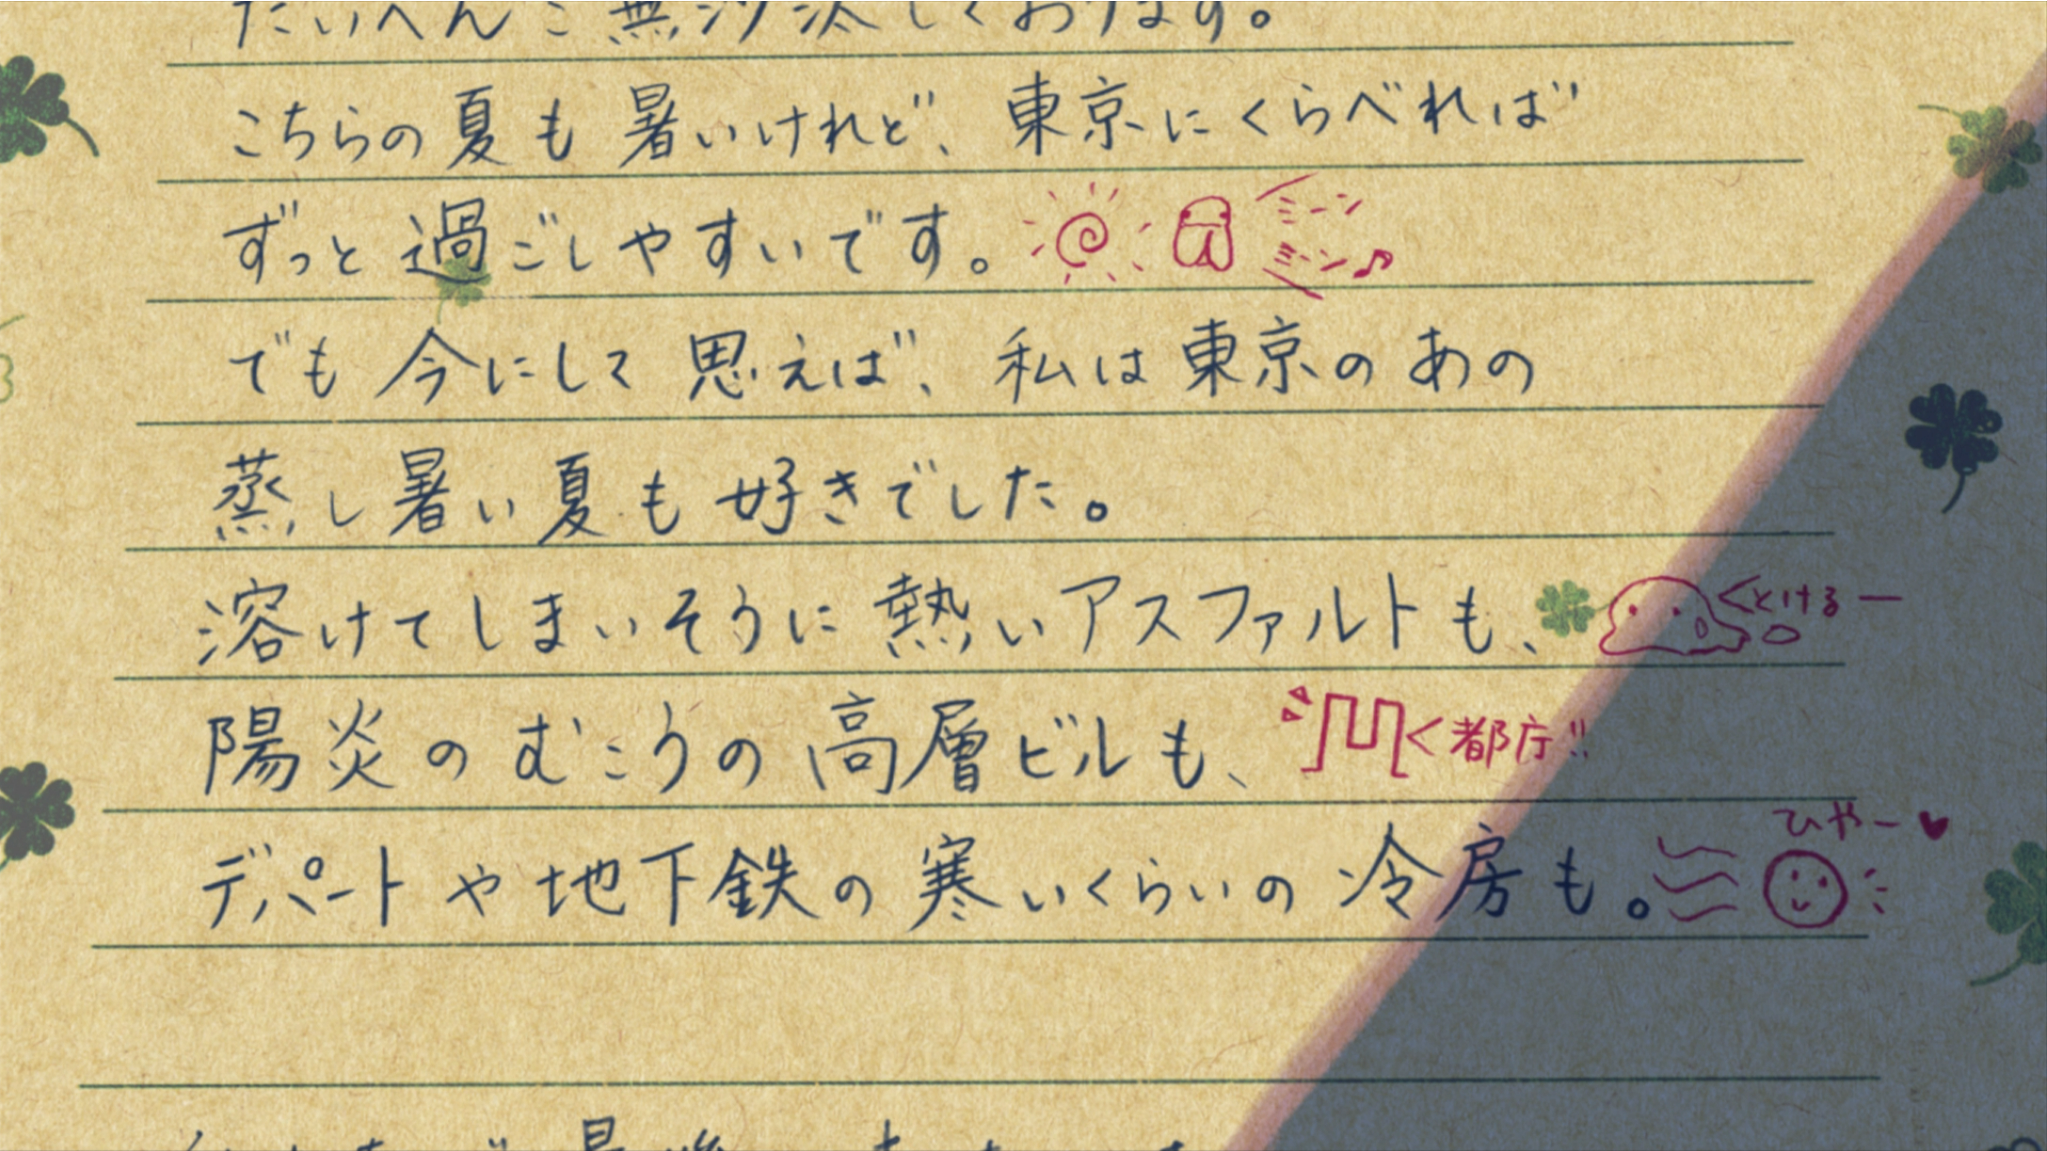 たいへんご無沙汰しております。
こちらの夏も暑いけれど、東京にくらべれば
ずっと過ごしやすいです。 ミーン ミーン♪
でも今にして思えば、私は東京のあの
蒸し暑い夏も好きでした。
溶けてしまいそうに熱いアスファルトも、 とけるー
陽炎のむこうの高層ビルも、 都庁!!
ひやー♥
デパートや地下鉄の寒いくらいの冷房も。